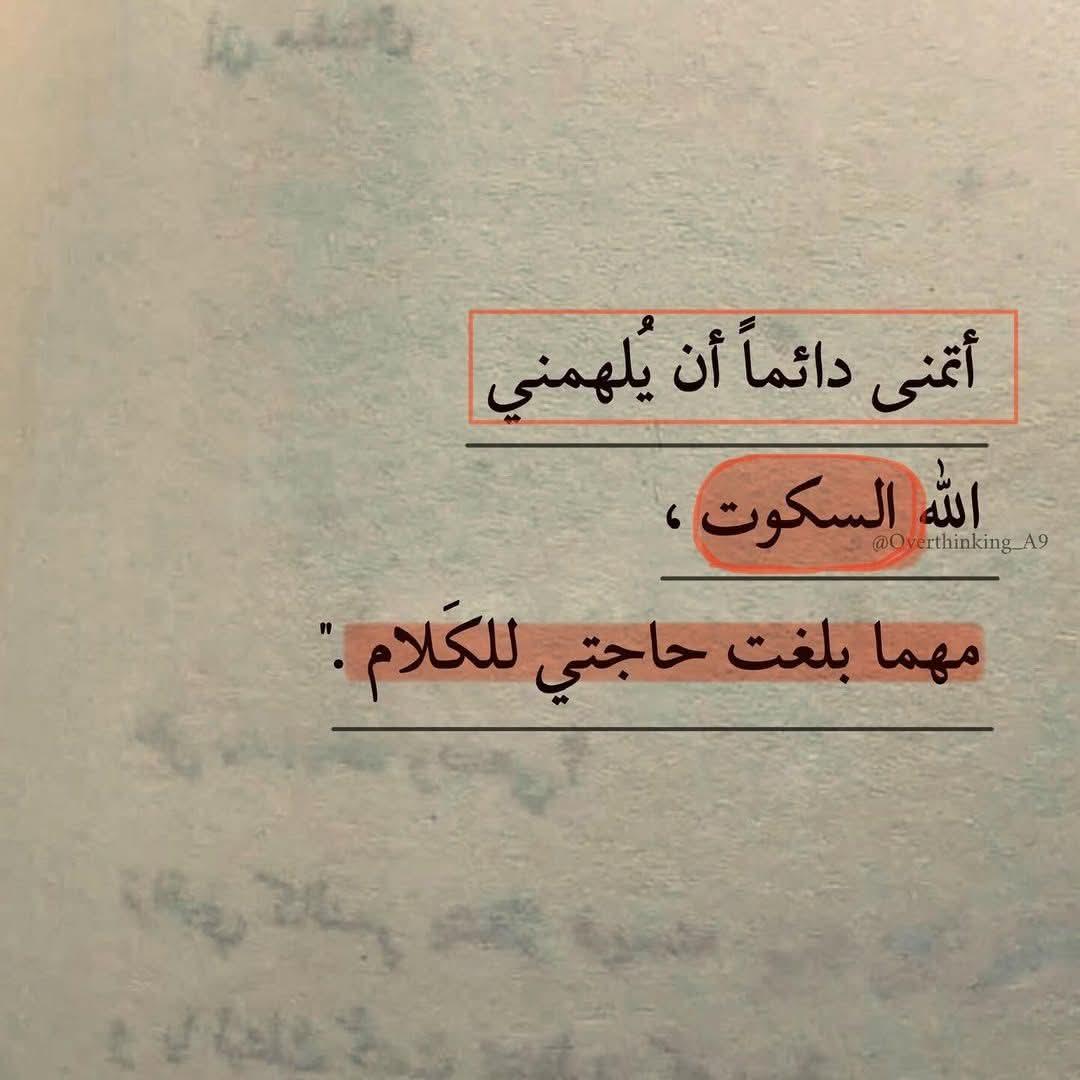 أتمنى دائماً أن يُلهمني
الله السكوت ،
@Overthinking_A9
مهما بلغت حاجتي للكَلام ."